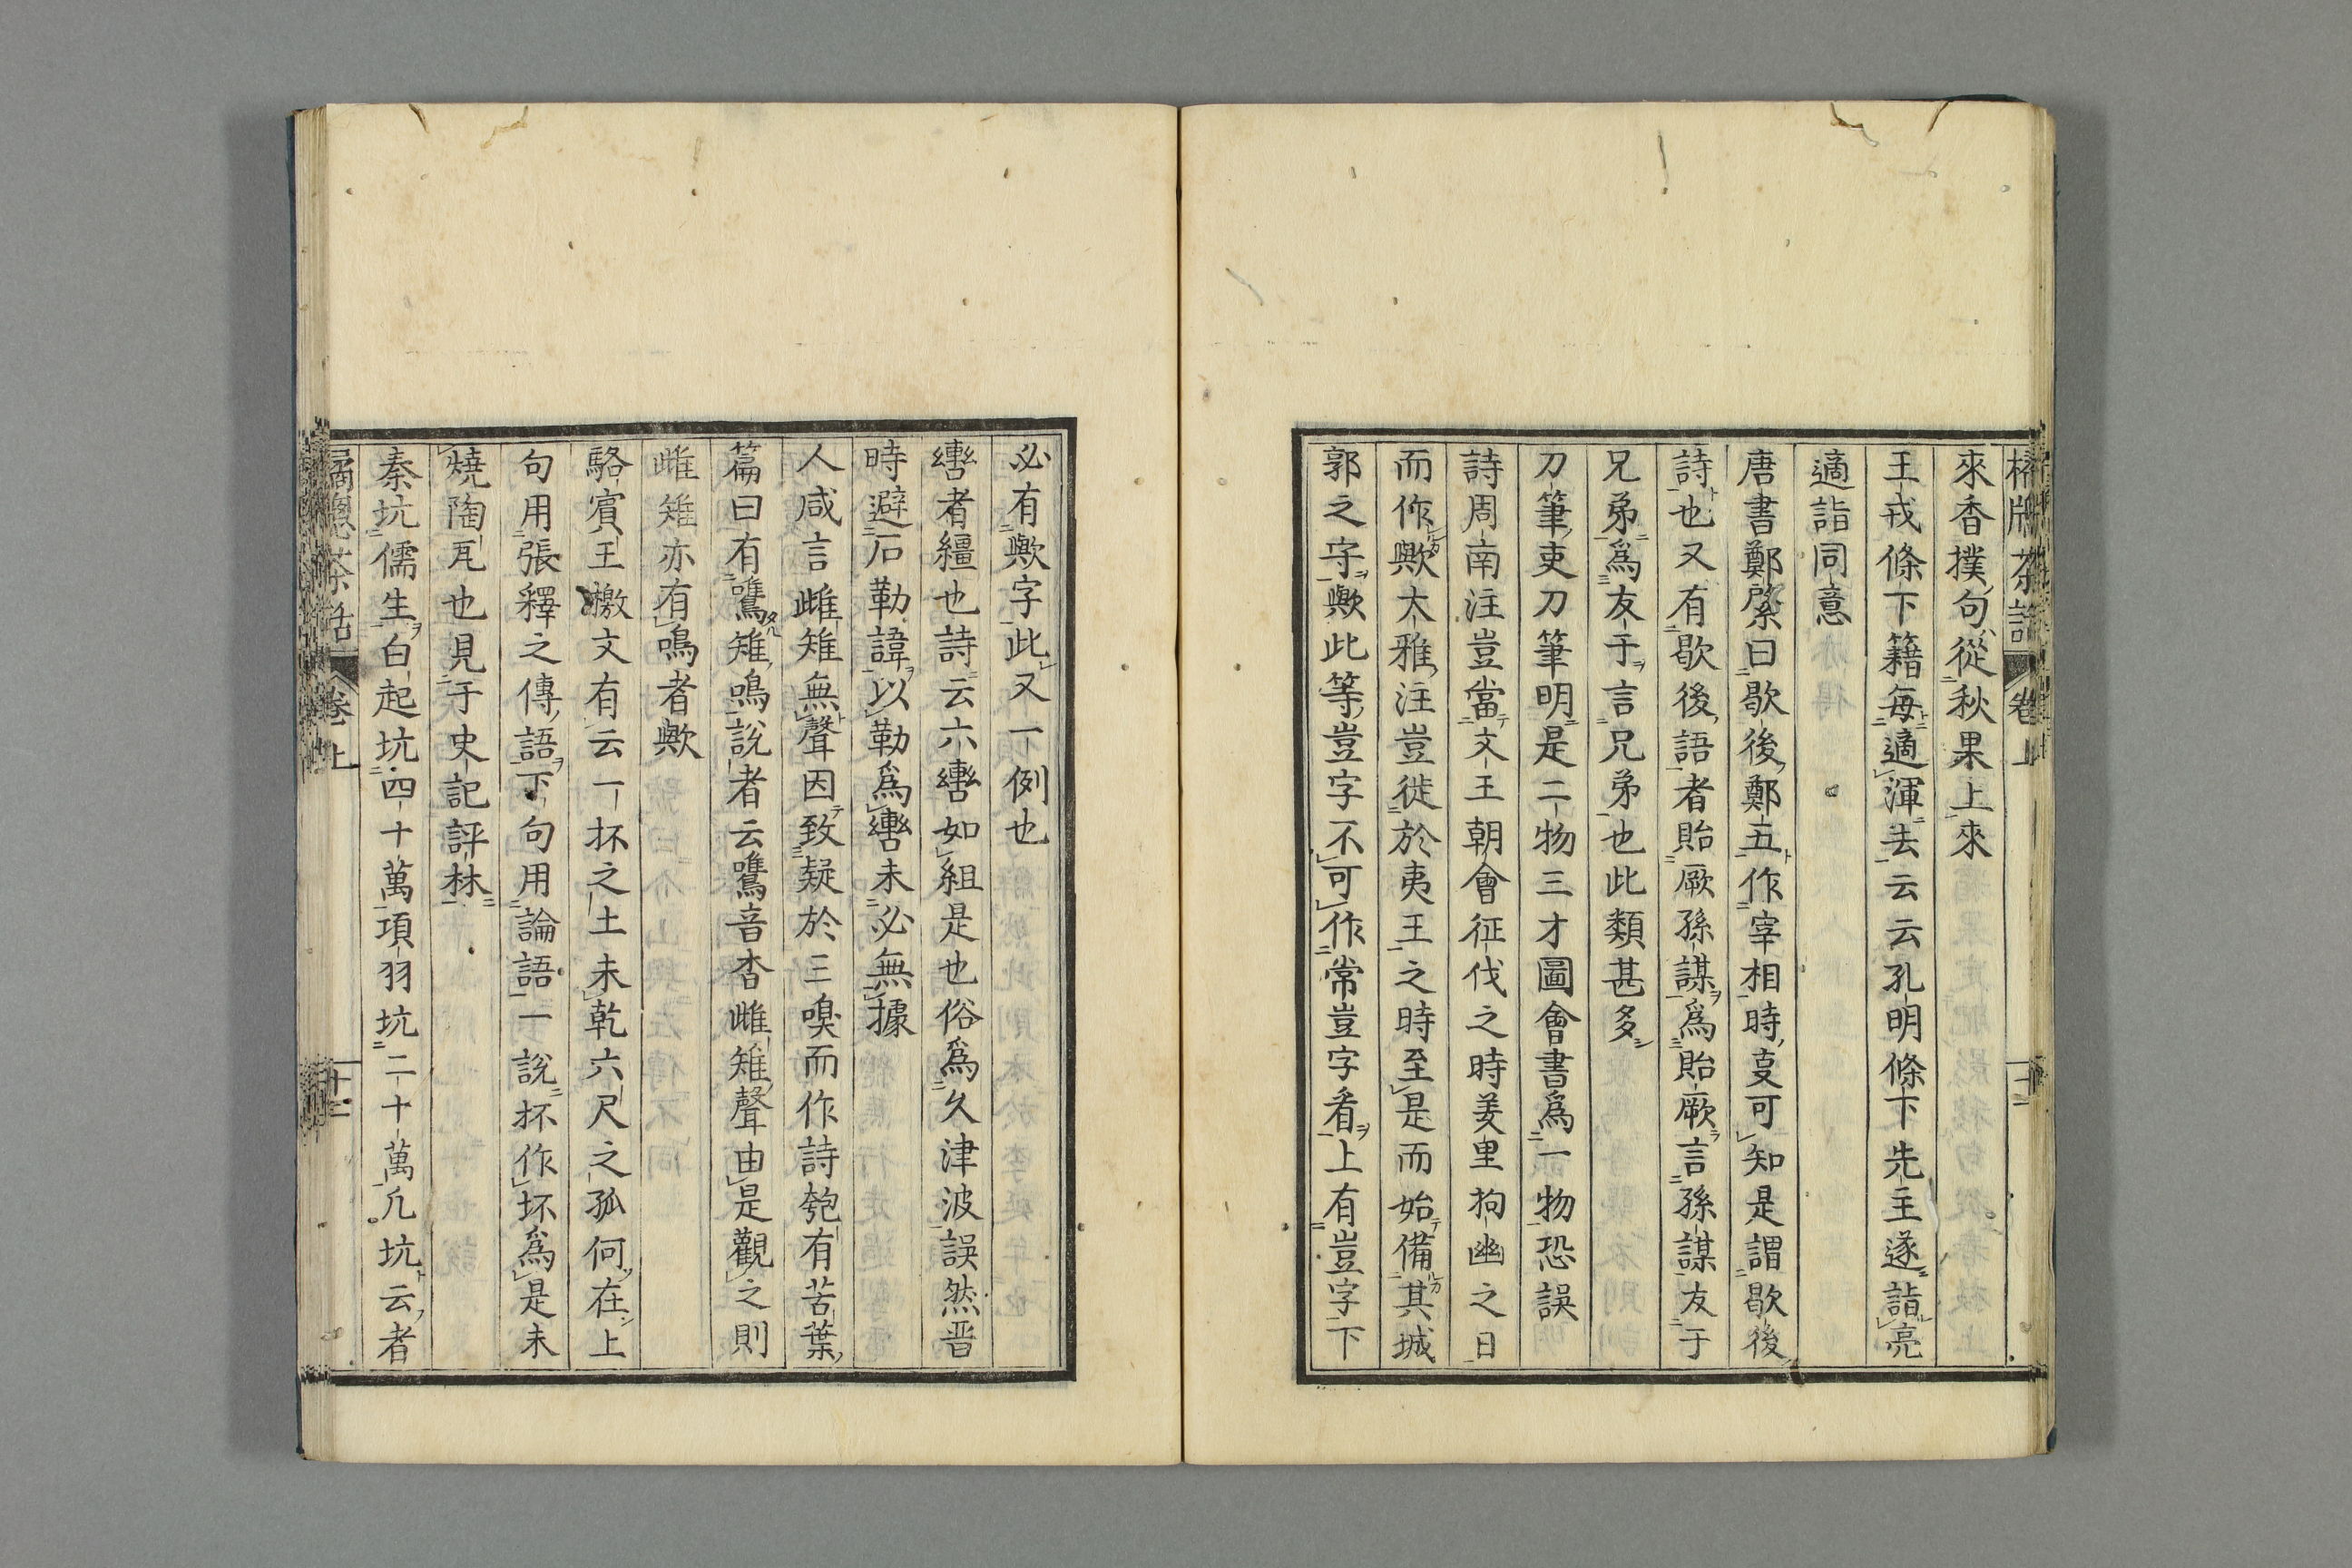 茶話 卷上 十一
來香撲句從秋果上來
王戎條下籍每適渾去云云孔明條下先主遂詣亮
適詣同意
唐書鄭綮曰歇後鄭五作宰相時㕝可知是謂歇後
詩也又有歇後語者貽厥孫謀爲貽厥言孫謀友于
兄弟爲友于言兄弟也此類甚多
刀筆吏刀筆明是二物三才圖會書爲一物恐誤
詩周南注豈當文王朝會征伐之時羑里拘幽之日
而作歟大雅注豈徙於夷王之時至是而始備其城
郭之守歟此等豈字不可作常豈字看上有豈字下
必有歟字此又一例也
轡者繮也詩云六轡如組是也俗爲久津波誤然晋
時避石勒諱以勒爲轡未必無據
人咸言雌雉無聲因致疑於三嗅而作詩匏有苦葉
篇曰有鷕雉鳴說者云鷕音杳雌雉聲由是觀之則
雌雉亦有鳴者歟
駱賓王檄文有云一抔之土未乾六尺之孤何在上
句用張釋之傳語下句用論語一說抔作坏爲是未
燒陶瓦也見于史記評林
秦坑儒生白起坑四十萬項羽坑二十萬凢坑云者
茶話 卷上 十二